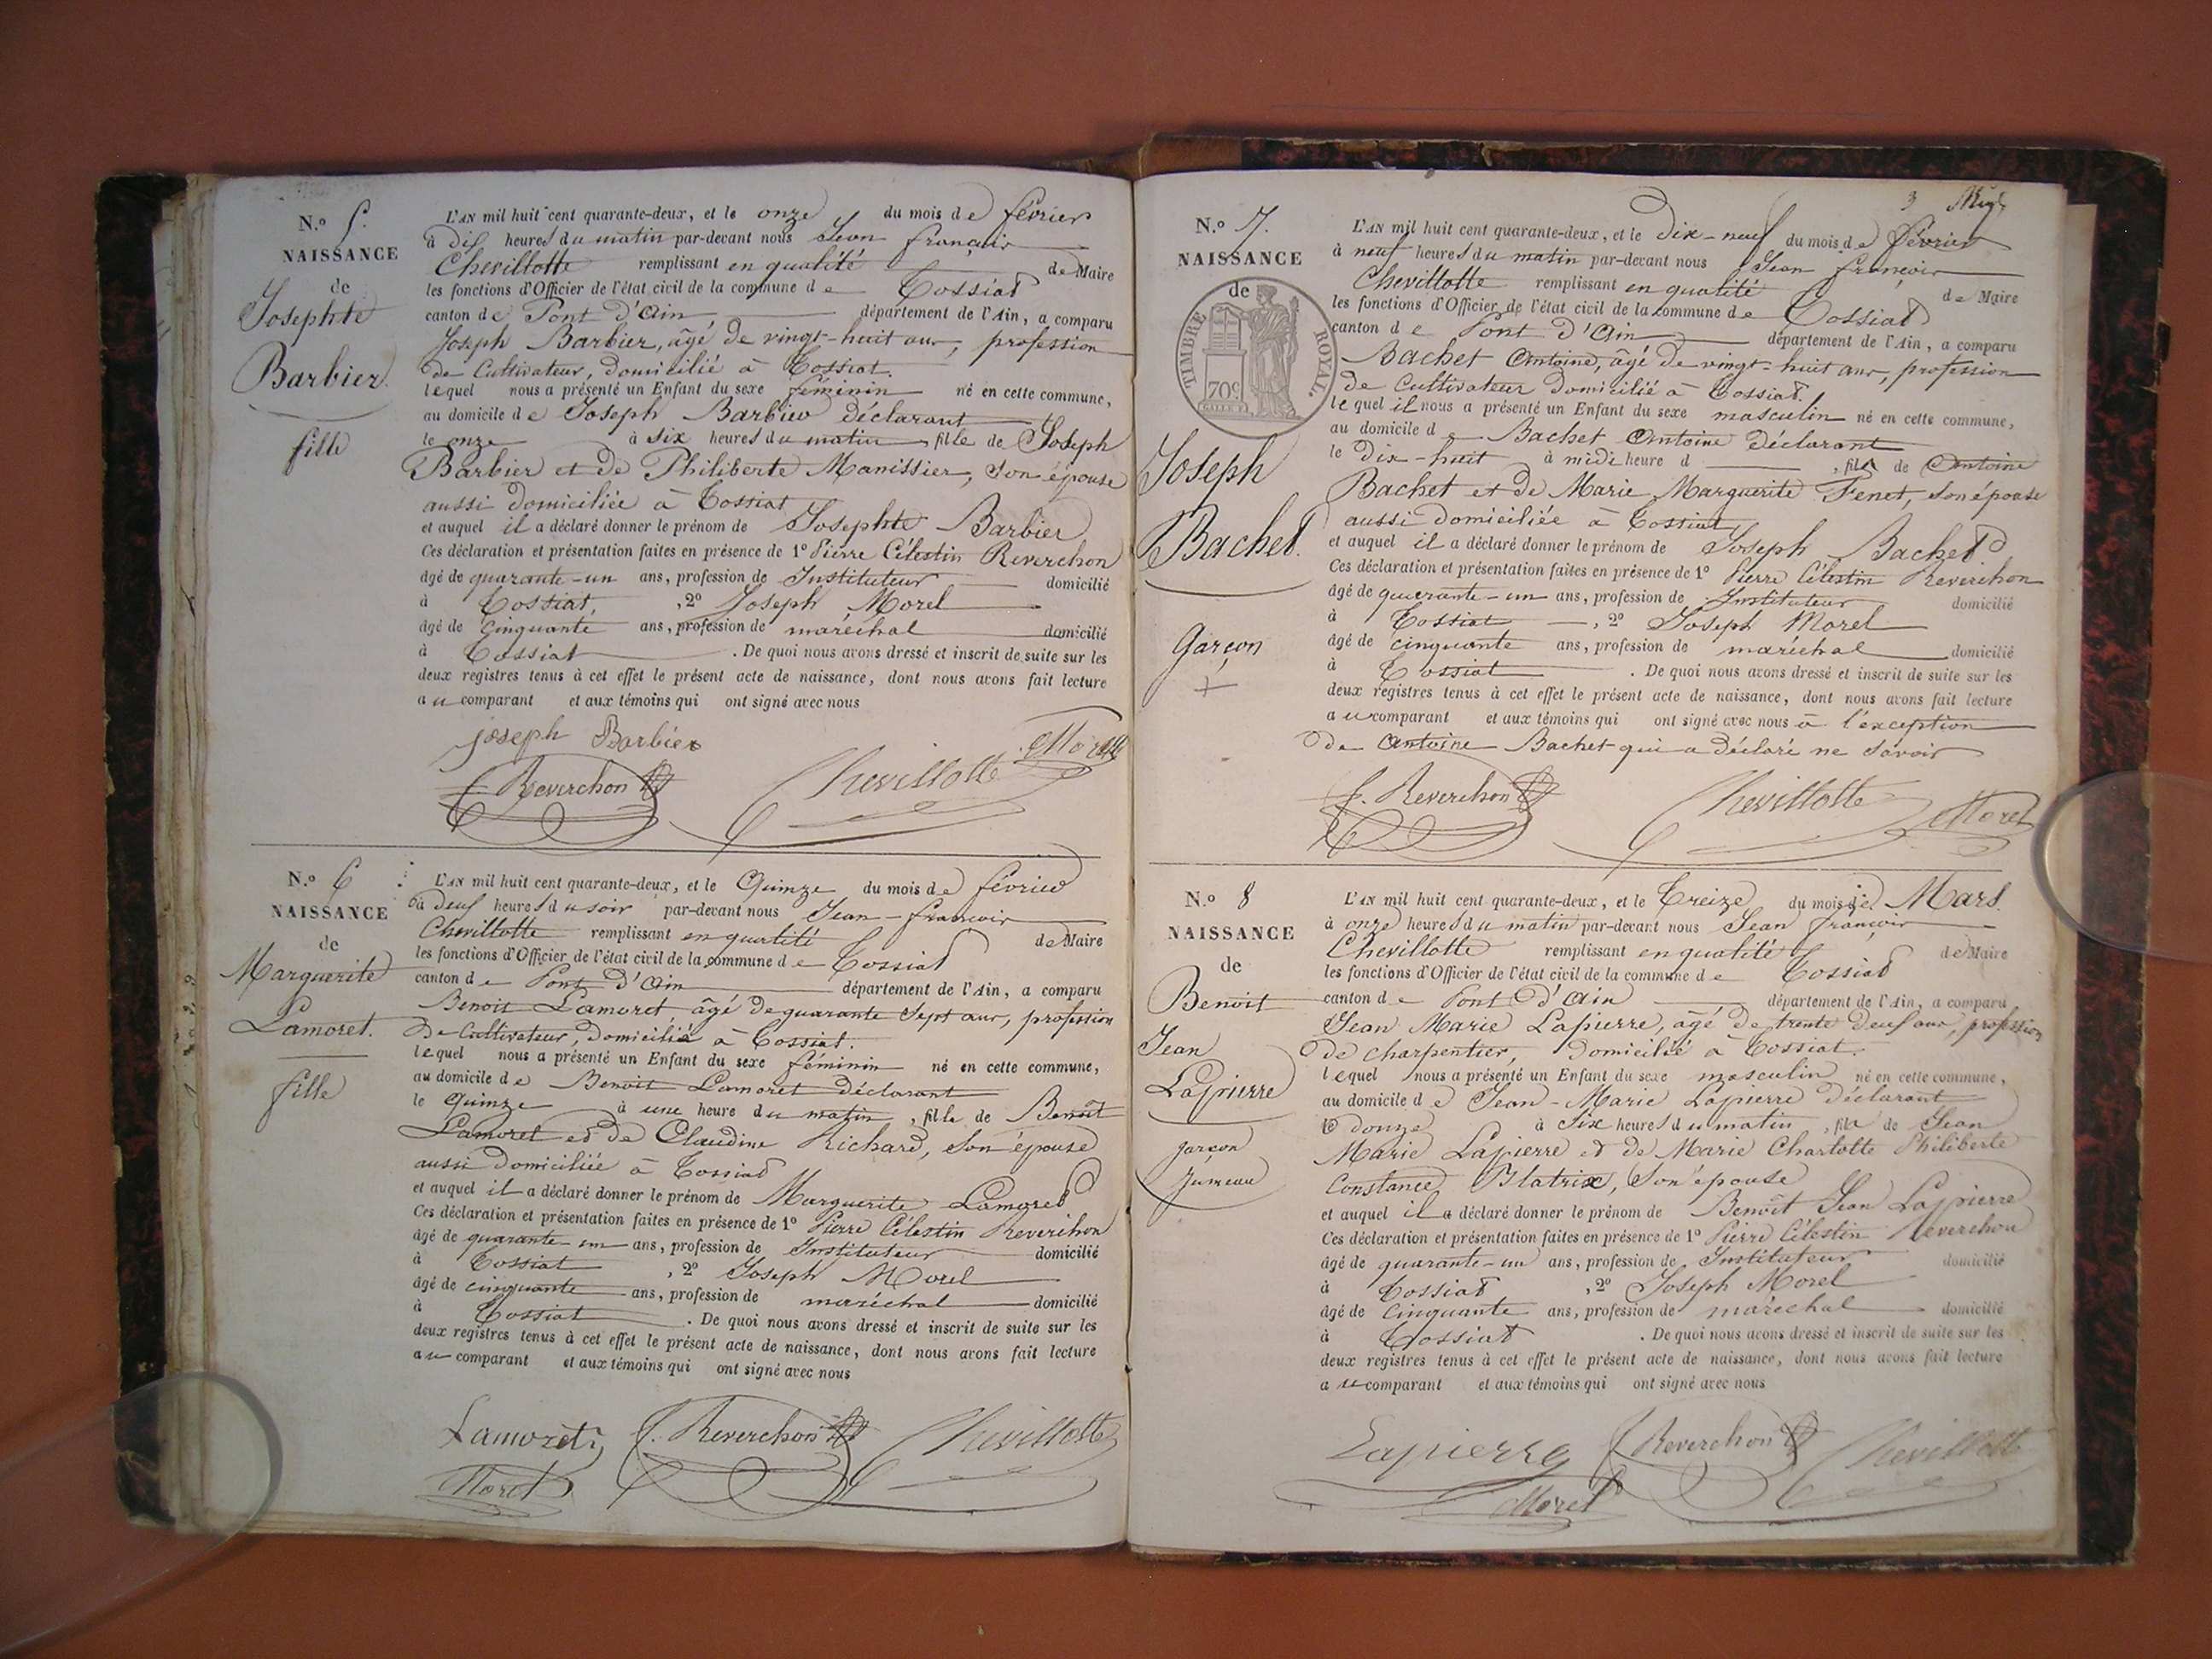 N.º 5.
NAISSANCE
de
Josephte
Barbier.
fille
L'AN mil huit cent quarante-deux, et le onze du mois de février
à dix heures du matin par-devant nous Jean françois
Chevillotte remplissant en qualité de Maire
les fonctions d'Officier de l'état civil de la commune de Tossiat
canton de Pont d'ain département de l'Ain, a comparu
Joseph Barbier, âgé de vingt-huit ans, profession
de Cultivateur, domicilié à Tossiat.
lequel nous a présenté un Enfant du sexe féminin né en cette commune,
au domicile de Joseph Barbier déclarant
le onze à six heures du matin, fille de Joseph
Barbier et de Philiberte Manissier, son épouse
aussi domiciliée à Tossiat
et auquel il a déclaré donner le prénom de Josephte Barbier
Ces déclaration et présentation faites en présence de 1º Pierre Célestin Reverchon
âgé de quarante-un ans, profession de Instituteur domicilié
à Tossiat, , 2º Joseph Morel
âgé de cinquante ans, profession de maréchal domicilié
à Tossiat . De quoi nous avons dressé et inscrit de suite sur les
deux registres tenus à cet effet le présent acte de naissance, dont nous avons fait lecture
au comparant et aux témoins qui ont signé avec nous
joseph Barbier
Morel
f. Reverchon Chevillotte
N.º 6
NAISSANCE
de
Marguerite
Lamoret.
fille
L'AN mil huit cent quarante-deux, et le Quinze du mois de février
à deux heures du soir par-devant nous Jean-françois
Chevillotte remplissant en qualité de Maire
les fonctions d'Officier de l'état civil de la commune de Tossiat
canton de Pont d'ain département de l'Ain, a comparu
Benoit Lamoret, âgé de quarante sept ans, profession
de Cultivateur, domicilié à Tossiat.
lequel nous a présenté un Enfant du sexe féminin né en cette commune,
au domicile de Benoit Lamoret déclarant
le Quinze à une heure du matin, fille de Benoît
Lamoret et de Claudine Richard, son épouse
aussi domiciliée à Tossiat
et auquel il a déclaré donner le prénom de Marguerite Lamoret
Ces déclaration et présentation faites en présence de 1º Pierre Célestin Reverchon
âgé de quarante-un ans, profession de Instituteur domicilié
à Tossiat , 2º Joseph Morel
âgé de cinquante ans, profession de maréchal domicilié
à Tossiat . De quoi nous avons dressé et inscrit de suite sur les
deux registres tenus à cet effet le présent acte de naissance, dont nous avons fait lecture
au comparant et aux témoins qui ont signé avec nous
Lamoret f. Reverchon Chevillotte
Morel
3
N.º 7.
NAISSANCE
de
TIMBRE ROYAL.
70c
Joseph
Bachet.
Garçon
L'AN mil huit cent quarante-deux, et le dix-neuf du mois de février
à neuf heures du matin par-devant nous Jean françois
Chevillotte remplissant en qualité de Maire
les fonctions d'Officier de l'état civil de la commune de Tossiat
canton de Pont d'Ain département de l'Ain, a comparu
Bachet Antoine, âgé de vingt-huit ans, profession
de Cultivateur domicilié à Tossiat.
lequel il nous a présenté un Enfant du sexe masculin né en cette commune,
au domicile de Bachet Antoine déclarant
le dix-huit à midi heure d , fils de Antoine
Bachet et de Marie Marguerite Fenet, son épouse
aussi domiciliée à Tossiat
et auquel il a déclaré donner le prénom de Joseph Bachet
Ces déclaration et présentation faites en présence de 1º Pierre Célestin Reverchon
âgé de quarante-un ans, profession de Instituteur domicilié
à Tossiat , 2º Joseph Morel
âgé de cinquante ans, profession de maréchal domicilié
à Tossiat . De quoi nous avons dressé et inscrit de suite sur les
deux registres tenus à cet effet le présent acte de naissance, dont nous avons fait lecture
au comparant et aux témoins qui ont signé avec nous à l'exception
de Antoine Bachet qui a déclaré ne savoir
f. Reverchon Chevillotte Morel
N.º 8
NAISSANCE
de
Benoit
Jean
Lapierre
garçon
Jumeau
L'AN mil huit cent quarante-deux, et le Treize du mois de Mars.
à onze heures du matin par-devant nous Jean françois
Chevillotte remplissant en qualité de Maire
les fonctions d'Officier de l'état civil de la commune de Tossiat
canton de Pont d'ain département de l'Ain, a comparu
Jean Marie Lapierre, âgé de trente deux ans, profession
de charpentier, domicilié à Tossiat.
lequel nous a présenté un Enfant du sexe masculin né en cette commune,
au domicile de Jean-Marie Lapierre déclarant
le douze à six heures du matin, fils de Jean
Marie Lapierre et de Marie Charlotte Philiberte
Constance Blatrix, son épouse
et auquel il a déclaré donner le prénom de Benoît Jean Lapierre
Ces déclaration et présentation faites en présence de 1º Pierre Célestin Reverchon
âgé de quarante-un ans, profession de Instituteur domicilié
à Tossiat , 2º Joseph Morel
âgé de cinquante ans, profession de maréchal domicilié
à Tossiat . De quoi nous avons dressé et inscrit de suite sur les
deux registres tenus à cet effet le présent acte de naissance, dont nous avons fait lecture
au comparant et aux témoins qui ont signé avec nous
Lapierre f. Reverchon Chevillotte
Morel